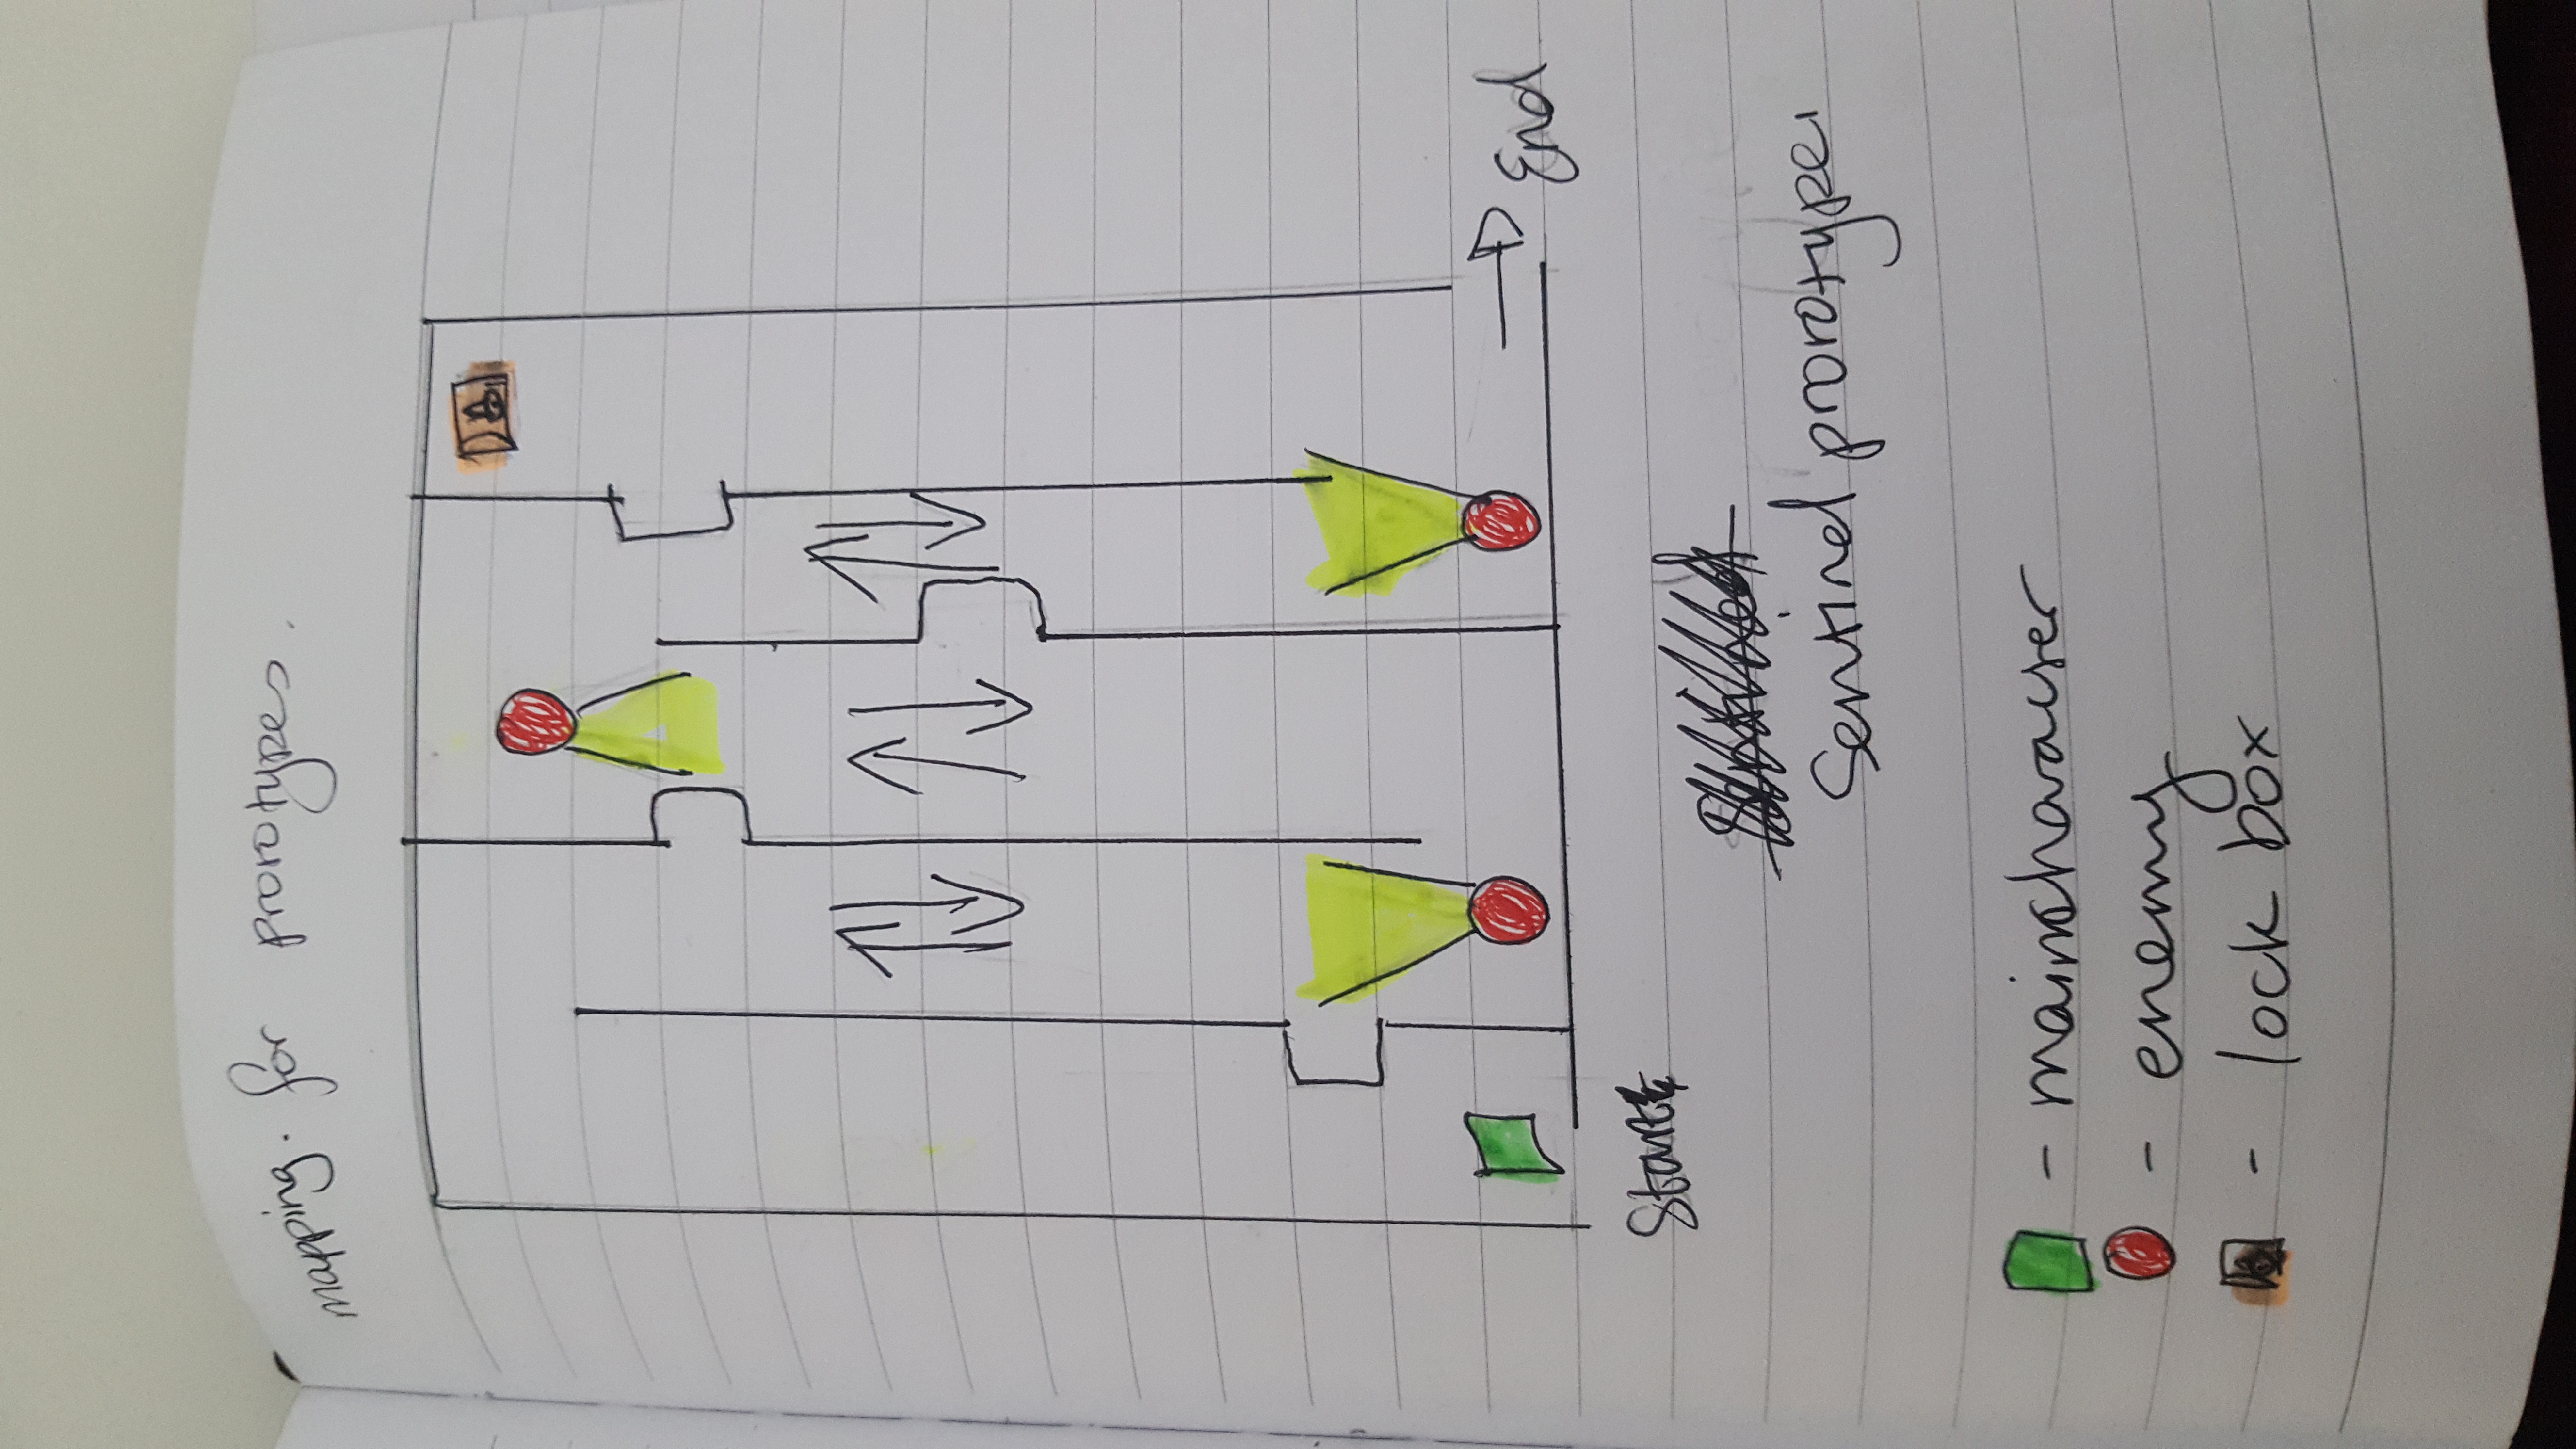 mapping. for prorotypes.
End
Start
Sentinel prorotype.
- maincharacter
- enemy
- lock box